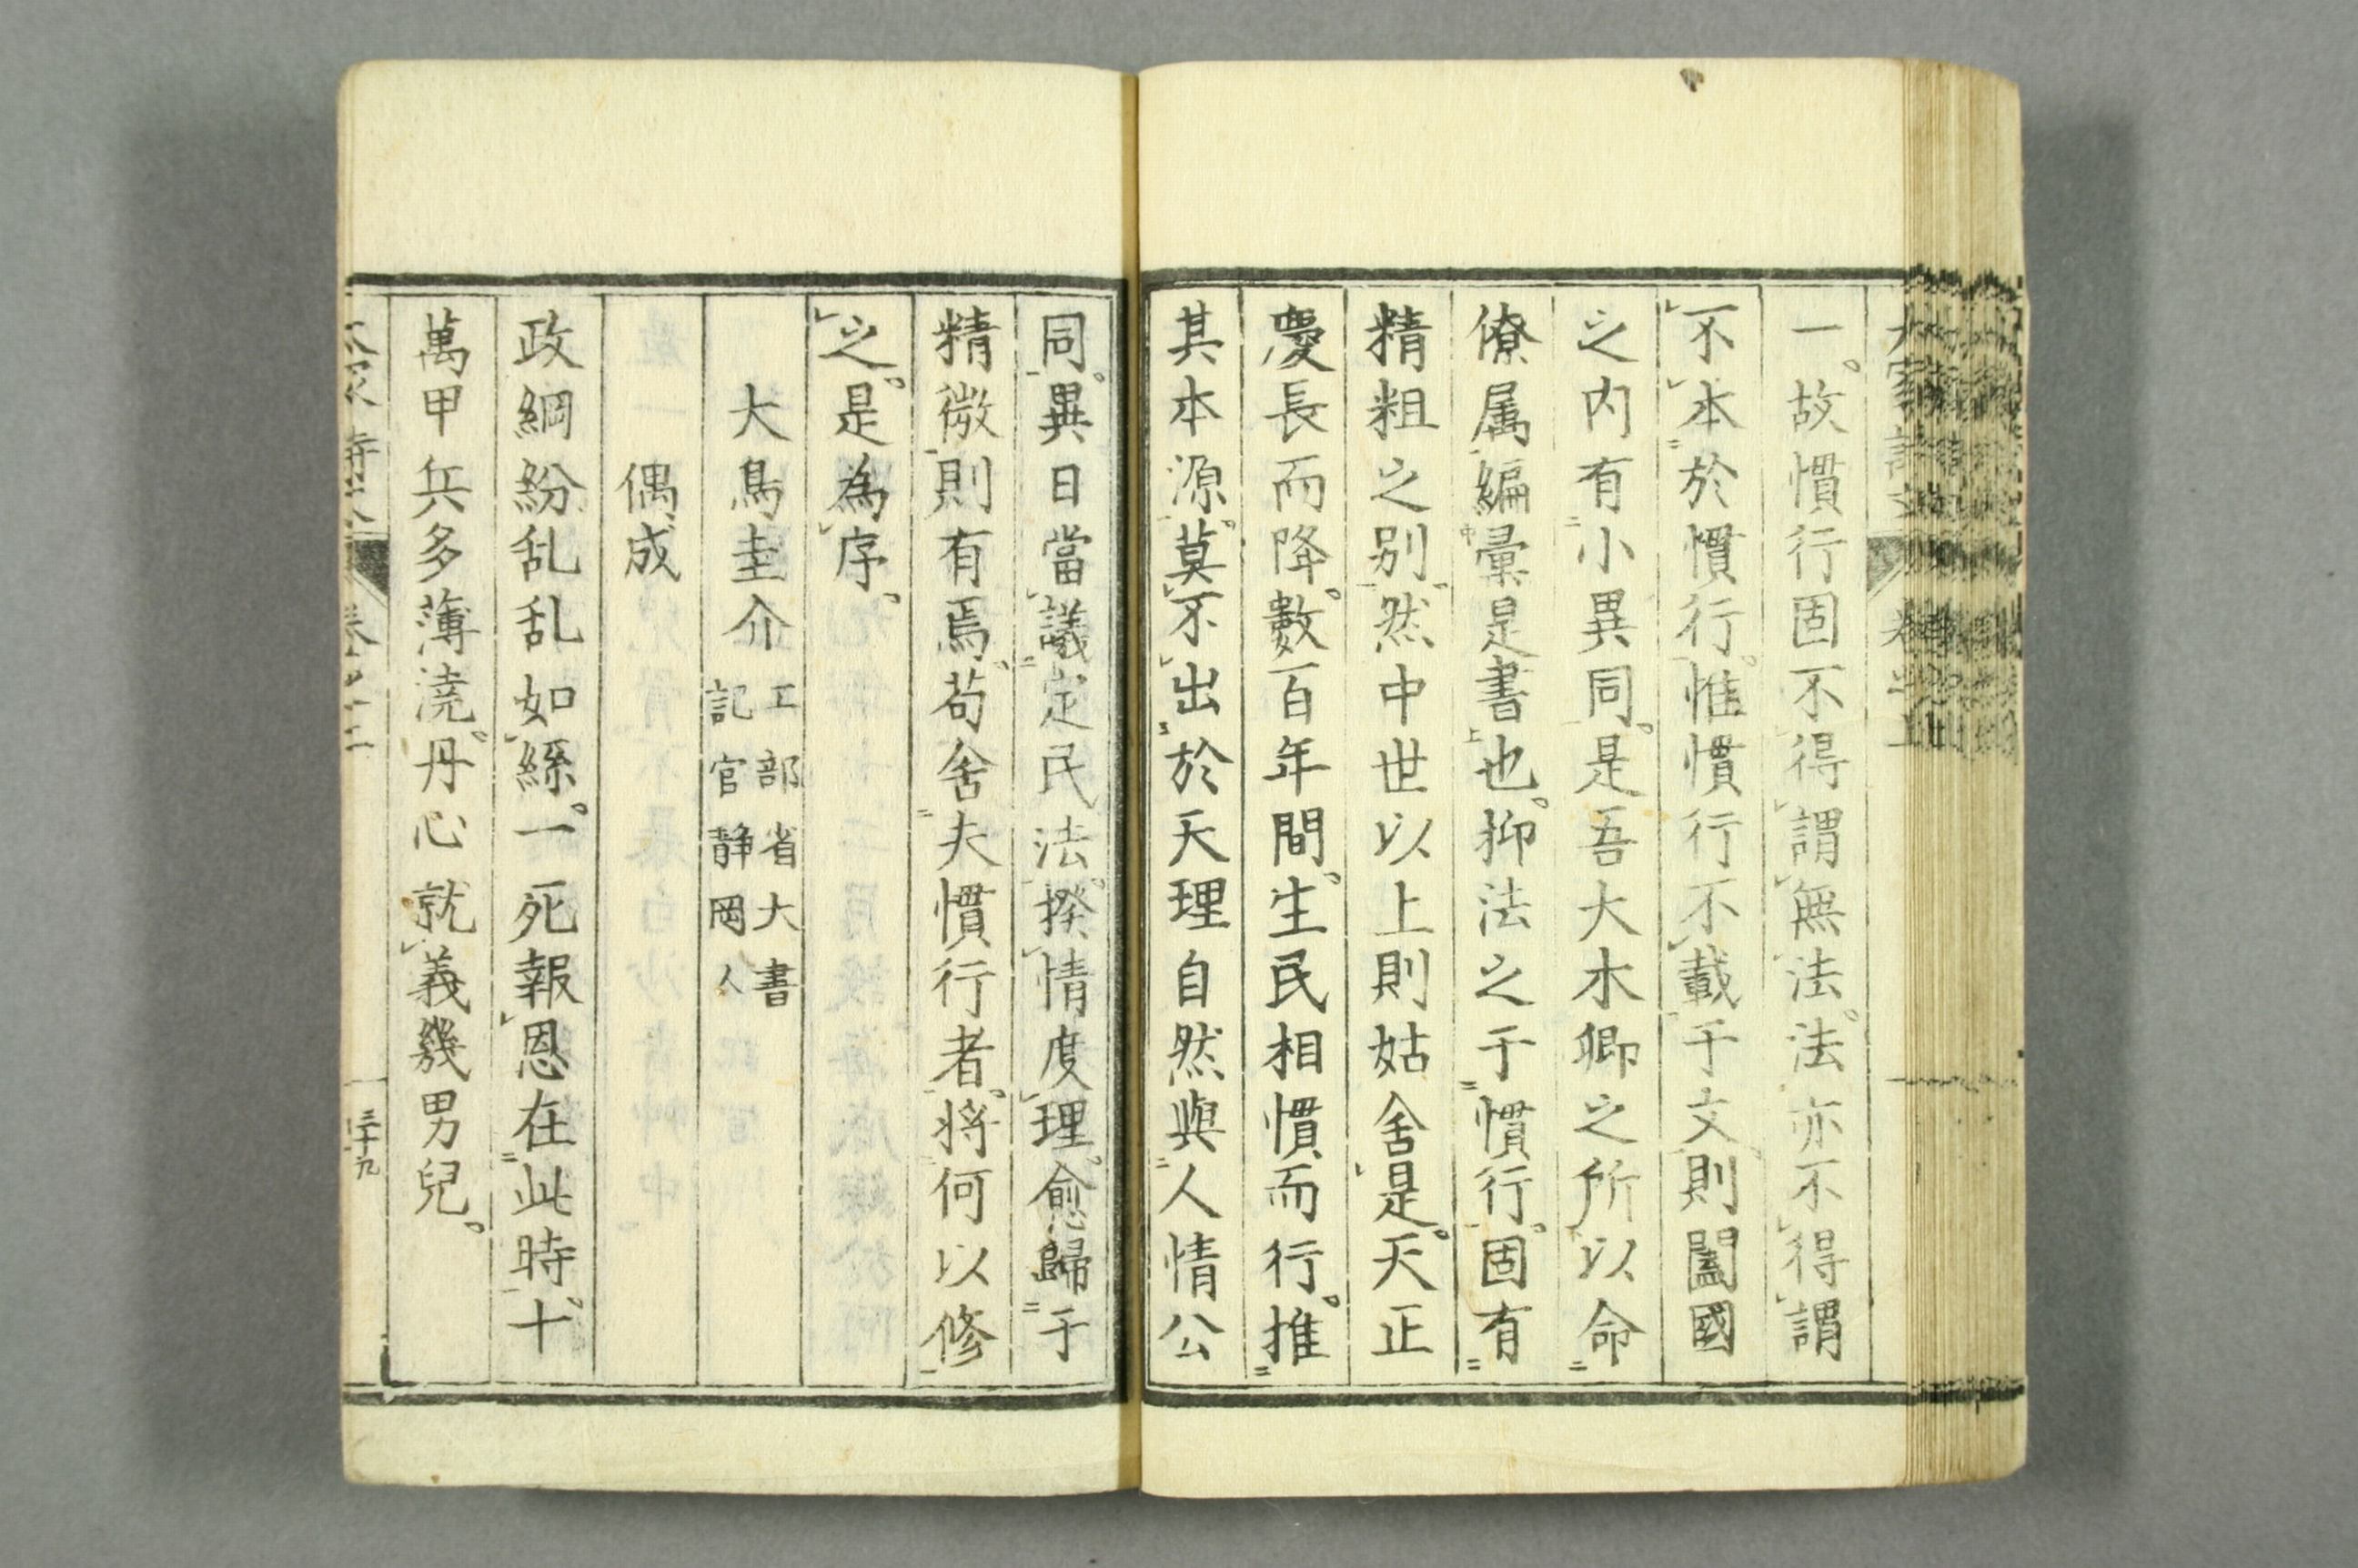 一。故慣行固不得謂無法。法亦不得謂
不本於慣行。惟慣行不載于文則闔國
之内有小異同。是吾大木卿之所以命
僚属編彙是書也。抑法之于慣行。固有
精粗之別。然中世以上則姑舍是。天正
慶長而降。數百年間。生民相慣而行。推
其本源。莫不出於天理自然與人情公
同。異日當議定民法。揆情度理。愈歸于
精微則有焉。苟舍夫慣行者。将何以修
之。是為序。
大鳥圭介
工部省大書
記官静岡人
偶成
政綱紛乱乱如絲。一死報恩在此時。十
萬甲兵多薄澆。丹心就義幾男兒。
三十九